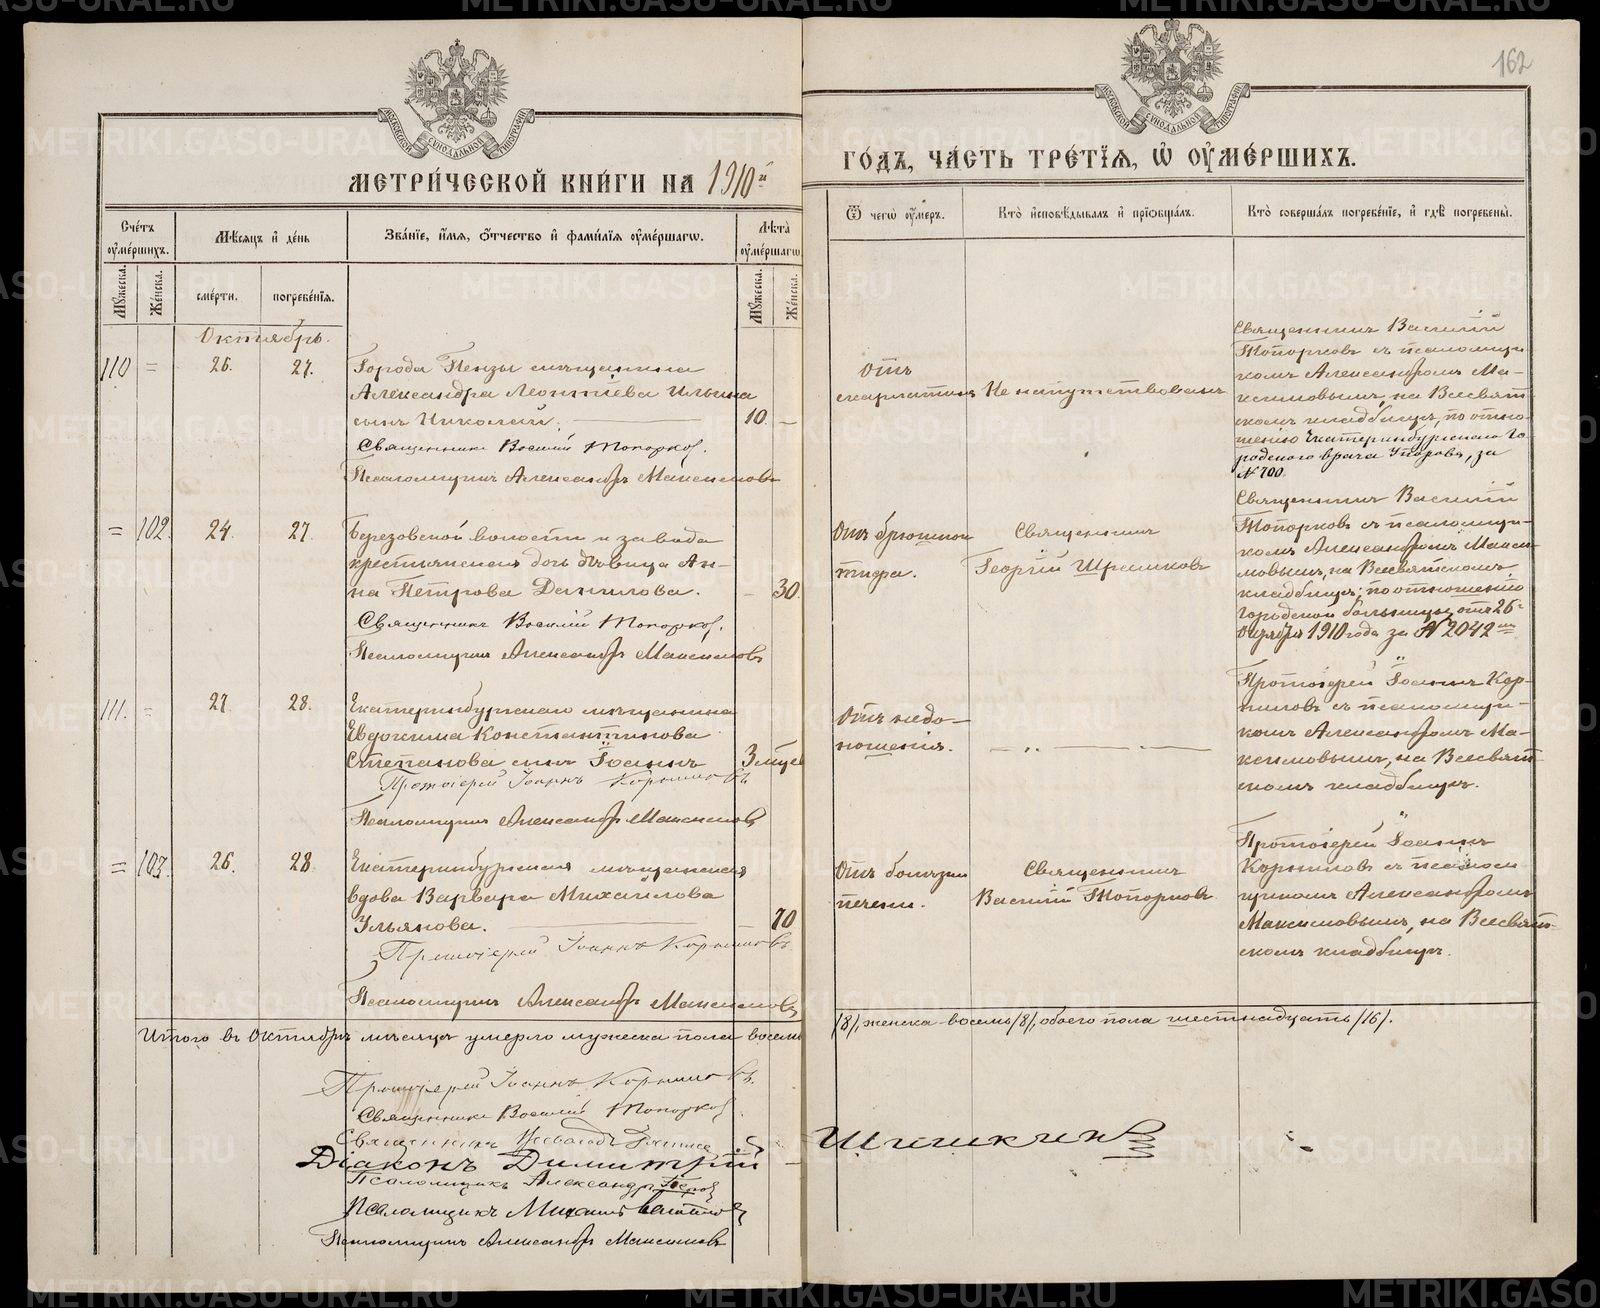 162
МОСКОВСКОЙ СѴНОДАЛЬНОЙ ТИПОГРАФІИ
МОСКОВСКОЙ СѴНОДАЛЬНОЙ ТИПОГРАФІИ
МЕТРИ́ЧЕСКОЙ КНИ́ГИ НА 1910й
ГО́ДЪ, ЧА́СТЬ ТРЕ́ТІѦ, Ѽ ОУ҆МЕ́РШИХЪ.
Сче́тъ оу҆ме́ршихъ.
Мѣсѧцъ и҆ де́нь
Зва́нїе, и҆́мѧ, ѻ҆́тчество и҆ фами́лїѧ оу҆ме́ршагѡ.
Лѣта̀ оу҆ме́ршагѡ
Ѿ чегѡ̀ оу҆́меръ.
Кто̀ и҆сповѣ́дывалъ и҆ прїѡбща́лъ.
Кто̀ соверша́лъ погребе́нїе, и҆ гдѣ̀ погребены̀.
Мꙋ́жеска.
Же́нска.
сме́рти.
погребе́нїѧ.
Мꙋ́жеска.
Же́нска.
Октябрь.
110 = 26. 27.
Города Пензы мѣщанина
Александра Леонтіева Ильина
сынъ Николай. 10. –
Священникъ Василій Топорковъ.
Псаломщикъ Александръ Максимовъ
Отъ
скарлатины
Не напутствованъ
Священникъ Василій
Топорковъ съ псаломщи-
комъ Александромъ Ма-
ксимовымъ, на Всесвят-
скомъ кладбищѣ, по отно-
шенію Екатеринбургскаго Го-
родского врача Упорова, за
№ 700.
= 102. 24. 27.
Березовской волости и завода
крестьянская дочь дѣвица Ан-
на Петрова Данилова. – 30.
Священникъ Василій Топорковъ.
Псаломщикъ Александръ Максимовъ
Отъ брюшного
тифа.
Священникъ
Георгій
Священникъ Василій
Топорковъ съ псаломщи-
комъ Александромъ Макси-
мовымъ, на Всесвятскомъ
кладбищѣ; по отношенію
Городской больницы отъ 26-
Октября 1910 года за № 2042
111. = 27. 28.
Екатеринбургскаго мѣщанина
Евдокима Константинова
Степанова сынъ Іоаннъ 3
Протоіерей Іоаннъ Корниловъ
Псаломщикъ Александръ Максимовъ
Отъ недо-
ношенія.
Протоіерей Іоаннъ Кор-
ниловъ съ псаломщи-
комъ Александромъ Ма-
ксимовымъ, на Всесвят-
скомъ кладбищѣ.
= 103. 26. 28
Екатеринбургская мѣщанская
вдова Варвара Михаилова
Ульянова. 70
Протоіерей Іоаннъ Корниловъ
Псаломщикъ Александръ Максимовъ
Отъ болѣзни
печени.
Священникъ
Василій Топорковъ
Протоіерей Іоаннъ
Корниловъ съ псалом-
щикомъ Александромъ
Максимовымъ, на Всесвят-
скомъ кладбищѣ.
Итого въ Октябрѣ мѣсяцѣ умерло мужеска пола восемь
/8/, женска восемь /8/, обоего пола шестнадцать /16/.
Протоіерей Іоаннъ Корниловъ.
Священникъ Василій Топорковъ
Священникъ
Діаконъ Димитрій Шишкинъ
Псаломщикъ Александръ
Псаломщикъ Михаилъ
Псаломщикъ Александръ Максимовъ
METRIKI.GASO-URAL.RU